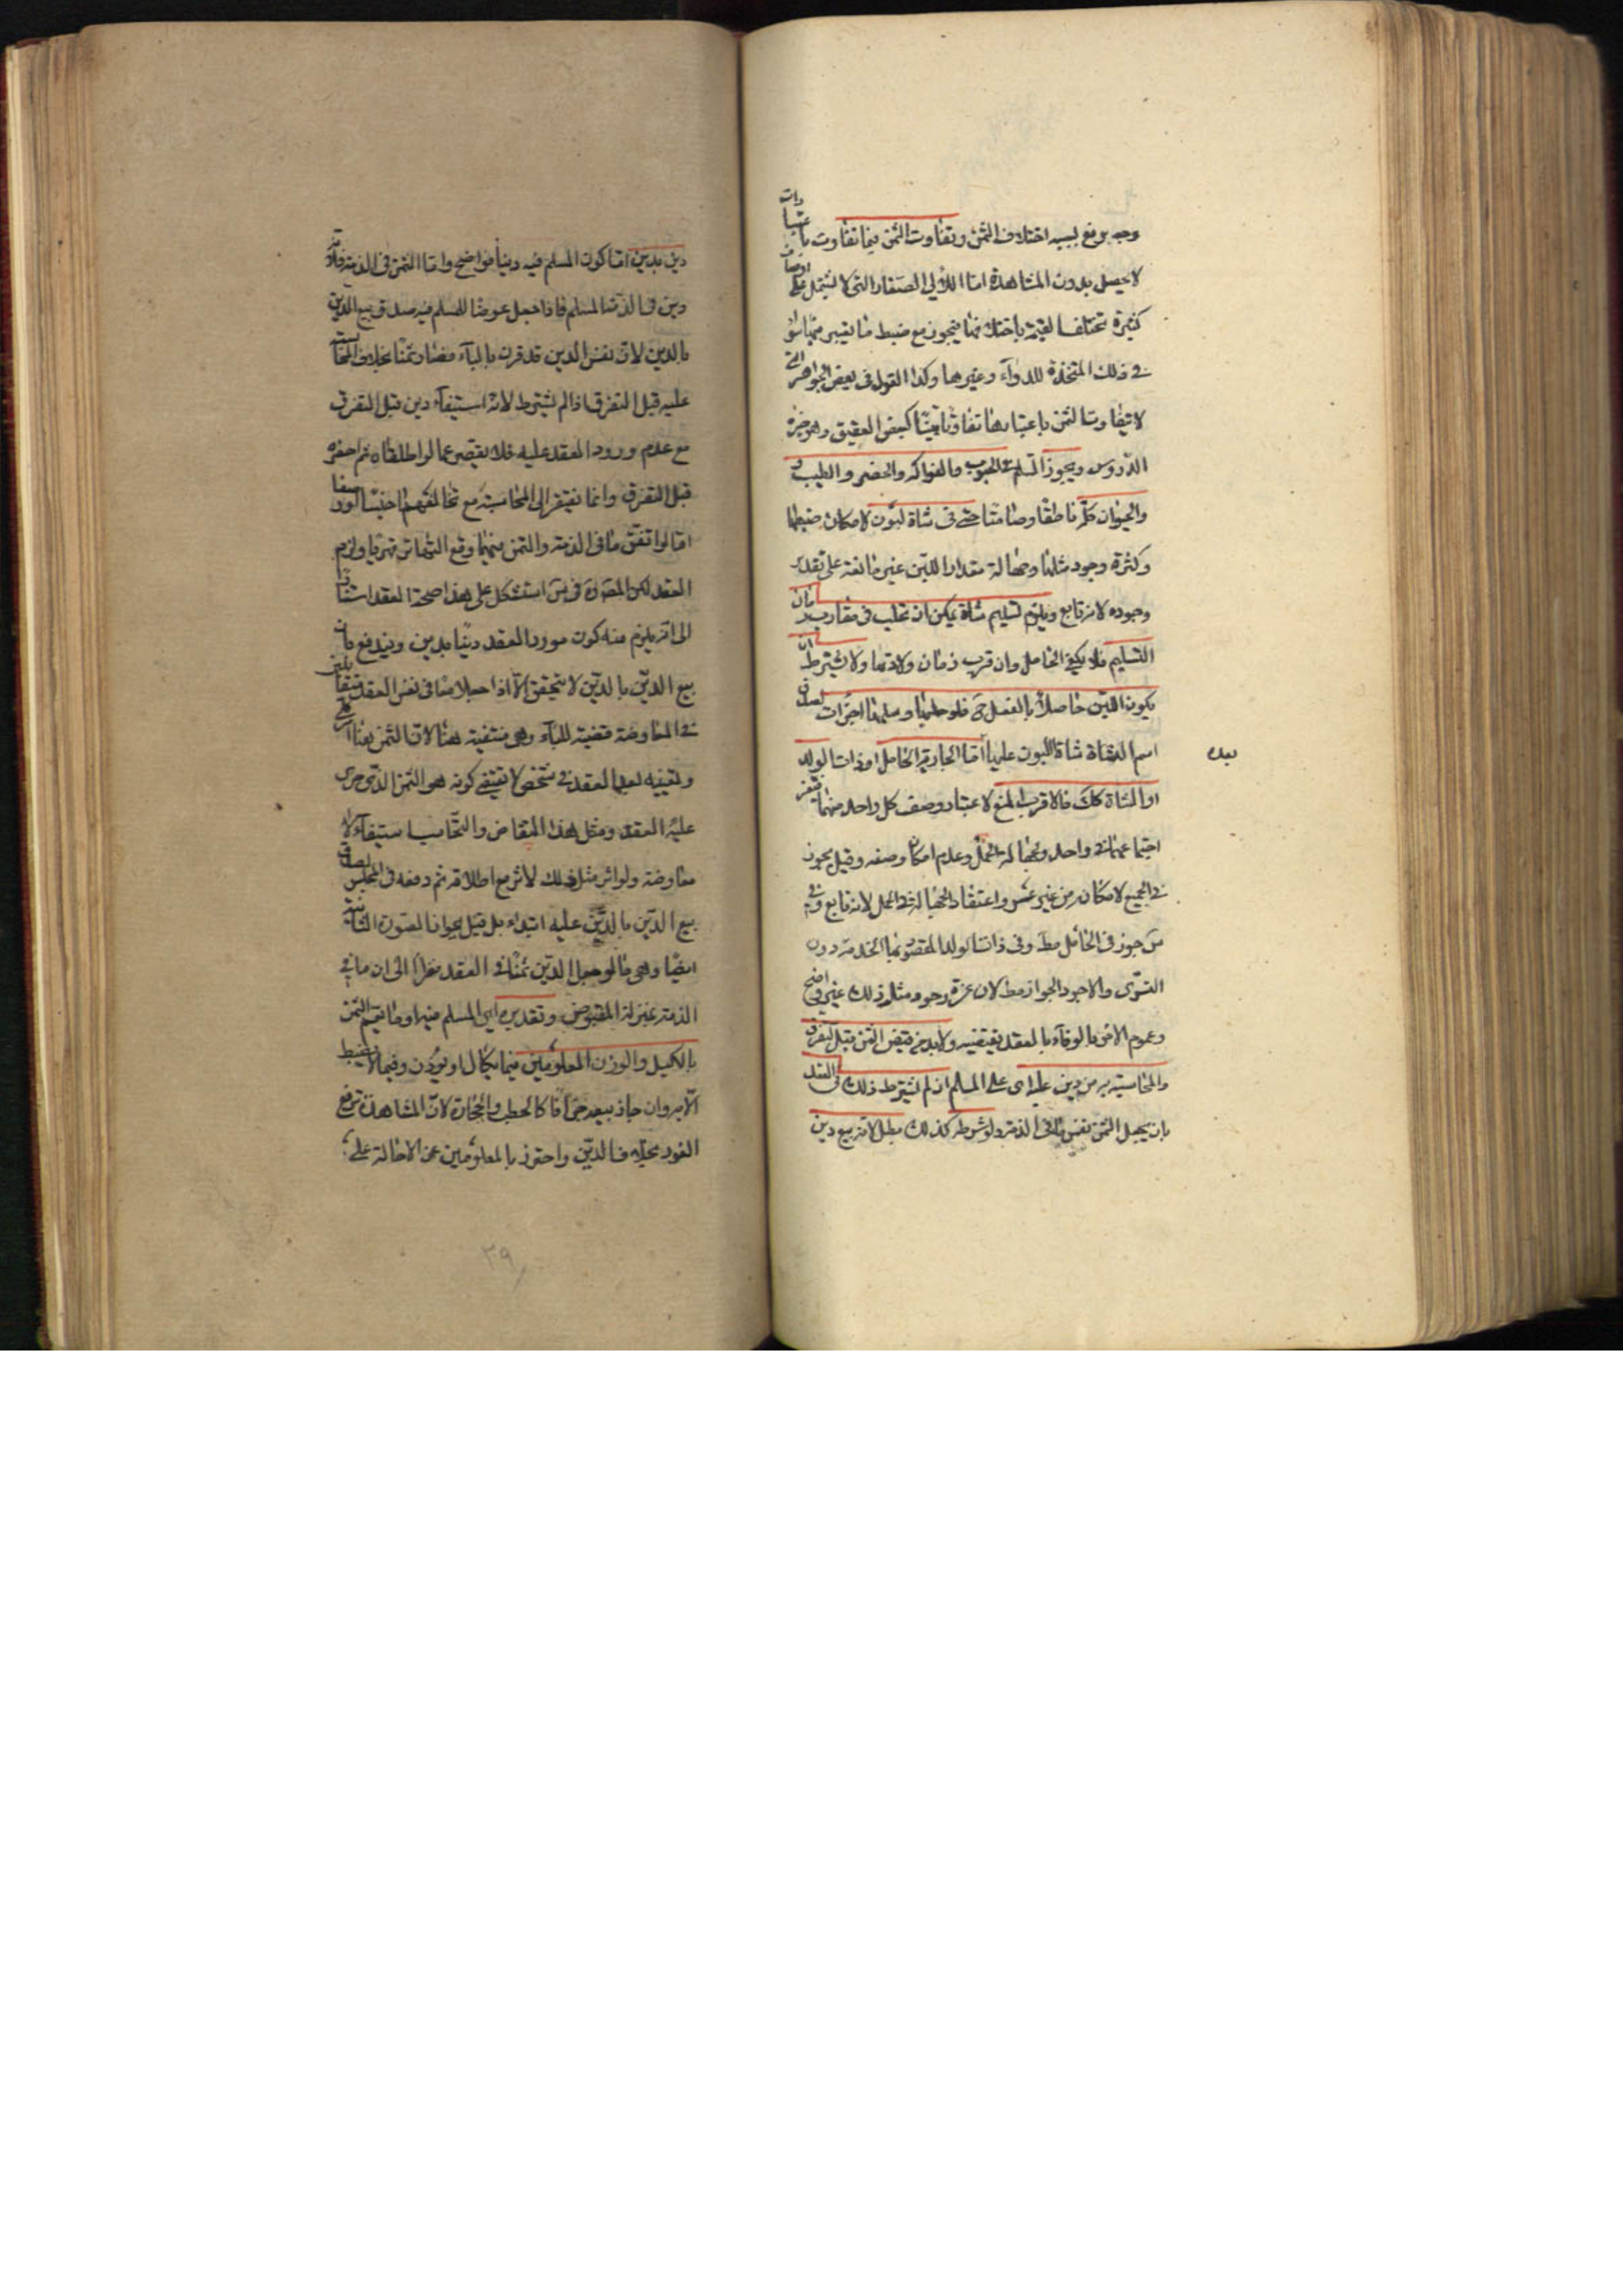 وجه يرفع بسببه اختلاف الثمن وتفاوت الثمن فيها تفاوت باعتبارات
لا يحصل بدون المشاهدة اما اللألي الصغار التي لا تشتمل على اوصاف
كثيرة تختلف القيمة باختلافها فيجوز مع ضبط ما يعتبر فيها سوا
في ذلك المتخذة للدواء وغيرها وكذا القول في بعض الجواهر التي
لا يتفاوت الثمن باعتبارها تفاوتا بينا كبعض العقيق وهو خيرة
الدروس ويجوز السلم في الحبوب والفواكه والخضر والطيب و
والحيوان كله ناطقا وصامتا حتى في شاة لبون لامكان ضبطها
وكثرة وجود مثلها وجهالة مقدار اللبن غير مانعة على تقدير
وجوده لانه تابع ويلزم تسليم شاة يمكن ان تحلب في مقارب زمان
التسليم فلا يكفي الحامل وان قرب زمان ولادتها ولا يشترط ان
يكون اللبن حاصلا بالفعل ح فلو حلبها وسلمها اجزات لصدق
اسم الشاة شاة اللبون عليها اما الجارية الحامل او ذات الولد
او الشاة كك فالاقرب المنع لاعتبار وصف كل واحد منهما فيعز
اجتماعهما في واحد ولجهالة الحمل وعدم امكان وصفه وقيل يجوز
في الجميع لامكانه من غير عسر واغتفار الجهالة في الحمل لانه تابع وفي
س جوز في الحامل مط وفي ذات الولد المقصود بها الخدمة دون
التسري والاجود الجواز مط لان عزة وجود مثل ذلك غير واضح
وعموم الامر بالوفاء بالعقد يقتضيه ولابد من قبض الثمن قبل التفرق
والمحاسبة به من دين عليه اى على المسلم ان لم يشترط ذلك في العقد
بان يجعل الثمن نفس ما في الذمة ولو شرطه كذلك بطل لانه بيع دين
بيده
دين بدين اما كون المسلم فيه دينا فواضح واما الثمن في الذمة فلانه
دين في ذمة المسلم فاذا جعل عوضا للمسلم فيه صدق بيع الدين
بالدين لان نفس الدين قد قرن بالباء فصار ثمنا بخلاف المحاسبة
عليه قبل التفرق اذا لم يشترط لانه استيفاء دين قبل التفرق
مع عدم ورود العقد عليه فلا يقصر عما لو اطلقاه ثم احضره
قبل التفرق وانما يفتقر الى المحاسبة مع تخالفهما جنسا او وصفا
اما لو اتفق ما في الذمة والثمن فيهما وقع التهاتر قهريا ولزم
العقد لكن المص ره في س استشكل على هذا صحة العقد استنادا
الى انه يلزم منه كون مورد العقد دينا بدين ويندفع بان
بيع الدين بالدين لا يتحقق الا اذا جعلا معا في نفس العقد متقابلين
في المعاوضة قضية للباء وهي منتفية هنا لان الثمن هنا امر كلي
وتعيينه بعد العقد في شخص لا يقتضي كونه هو الثمن الذي جرى
عليه العقد ومثل هذا التقاص والتحاسب استيفاء لا
معاوضة ولو اثر مثل ذلك لاثر مع اطلاقه ثم دفعه في المجلس لصدق
بيع الدين بالدين عليه ابتداء بل قيل بجواز الصورة الثانية
ايضا وهي ما لو جعل الدين ثمنا في العقد نظرا الى ان ما في
الذمة بمنزلة المقبوض وتقديره اي المسلم فيه او ما يعم الثمن
بالكيل والوزن المعلومين فيما يكال او يوزن وفيما لا يضبط
الا به وان جاز بيعه جزافا كالحطب والحجارة لان المشاهدة ترفع
الغرر بخلاف الدين واحترز بالمعلومين عن الاحالة على
٣٠٩